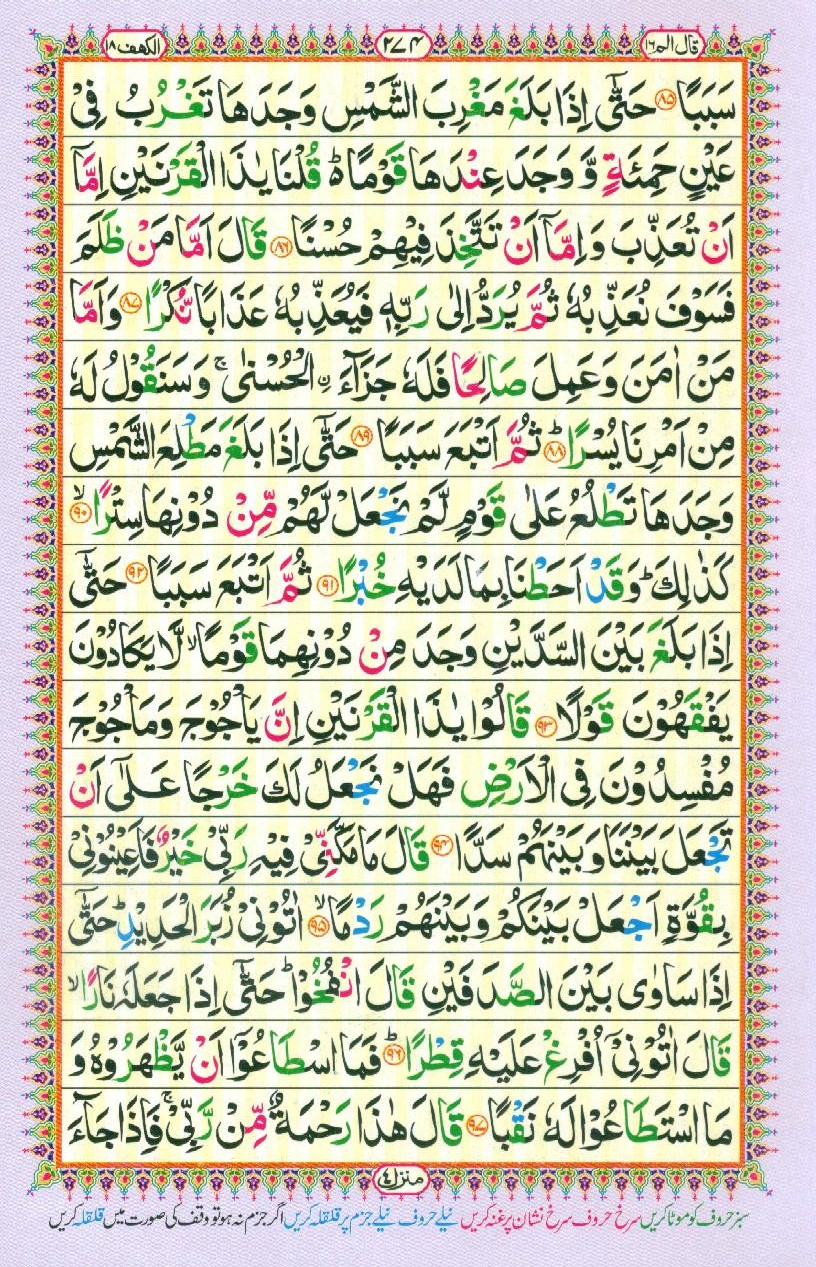 قال الم ۱۶
۲۷۴
الکھف ۱۸
سَبَبًا ﴿۸۵﴾ حَتّٰۤی اِذَا بَلَغَ مَغْرِبَ الشَّمْسِ وَجَدَهَا تَغْرُبُ فِیْ
عَیْنٍ حَمِئَةٍ وَّ وَجَدَ عِنْدَهَا قَوْمًا ؕ۬ قُلْنَا یٰذَا الْقَرْنَیْنِ اِمَّاۤ
اَنْ تُعَذِّبَ وَ اِمَّاۤ اَنْ تَتَّخِذَ فِیْهِمْ حُسْنًا ﴿۸۶﴾ قَالَ اَمَّا مَنْ ظَلَمَ
فَسَوْفَ نُعَذِّبُهٗ ثُمَّ یُرَدُّ اِلٰی رَبِّهٖ فَیُعَذِّبُهٗ عَذَابًا نُّكْرًا ﴿۸۷﴾ وَ اَمَّا
مَنْ اٰمَنَ وَ عَمِلَ صَالِحًا فَلَهٗ جَزَآءَ ِ۟الْحُسْنٰی ۚ وَ سَنَقُوْلُ لَهٗ
مِنْ اَمْرِنَا یُسْرًا ﴿ؕ۸۸﴾ ثُمَّ اَتْبَعَ سَبَبًا ﴿۸۹﴾ حَتّٰۤی اِذَا بَلَغَ مَطْلِعَ الشَّمْسِ
وَجَدَهَا تَطْلُعُ عَلٰی قَوْمٍ لَّمْ نَجْعَلْ لَّهُمْ مِّنْ دُوْنِهَا سِتْرًا ﴿ۙ۹۰﴾
كَذٰلِكَ ؕ وَ قَدْ اَحَطْنَا بِمَا لَدَیْهِ خُبْرًا ﴿۹۱﴾ ثُمَّ اَتْبَعَ سَبَبًا ﴿۹۲﴾ حَتّٰۤی
اِذَا بَلَغَ بَیْنَ السَّدَّیْنِ وَجَدَ مِنْ دُوْنِهِمَا قَوْمًا ۙ لَّا یَكَادُوْنَ
یَفْقَهُوْنَ قَوْلًا ﴿۹۳﴾ قَالُوْا یٰذَا الْقَرْنَیْنِ اِنَّ یَاْجُوْجَ وَ مَاْجُوْجَ
مُفْسِدُوْنَ فِی الْاَرْضِ فَهَلْ نَجْعَلُ لَكَ خَرْجًا عَلٰۤی اَنْ
تَجْعَلَ بَیْنَنَا وَ بَیْنَهُمْ سَدًّا ﴿۹۴﴾ قَالَ مَا مَكَّنِّیْ فِیْهِ رَبِّیْ خَیْرٌ فَاَعِیْنُوْنِیْ
بِقُوَّةٍ اَجْعَلْ بَیْنَكُمْ وَ بَیْنَهُمْ رَدْمًا ﴿ۙ۹۵﴾ اٰتُوْنِیْ زُبَرَ الْحَدِیْدِ ؕ حَتّٰۤی
اِذَا سَاوٰی بَیْنَ الصَّدَفَیْنِ قَالَ انْفُخُوْا ؕ حَتّٰۤی اِذَا جَعَلَهٗ نَارًا ۙ
قَالَ اٰتُوْنِیْۤ اُفْرِغْ عَلَیْهِ قِطْرًا ﴿ؕ۹۶﴾ فَمَا اسْطَاعُوْۤا اَنْ یَّظْهَرُوْهُ وَ
مَا اسْتَطَاعُوْا لَهٗ نَقْبًا ﴿۹۷﴾ قَالَ هٰذَا رَحْمَةٌ مِّنْ رَّبِّیْ ۚ فَاِذَا جَآءَ
منزل ۴
سبز حروف کو موٹا کریں سرخ حروف سرخ نشان پر غنہ کریں نیلے حروف نیلے جزم پر قلقلہ کریں اگر جزم نہ ہو تو وقف کی صورت میں قلقلہ کریں